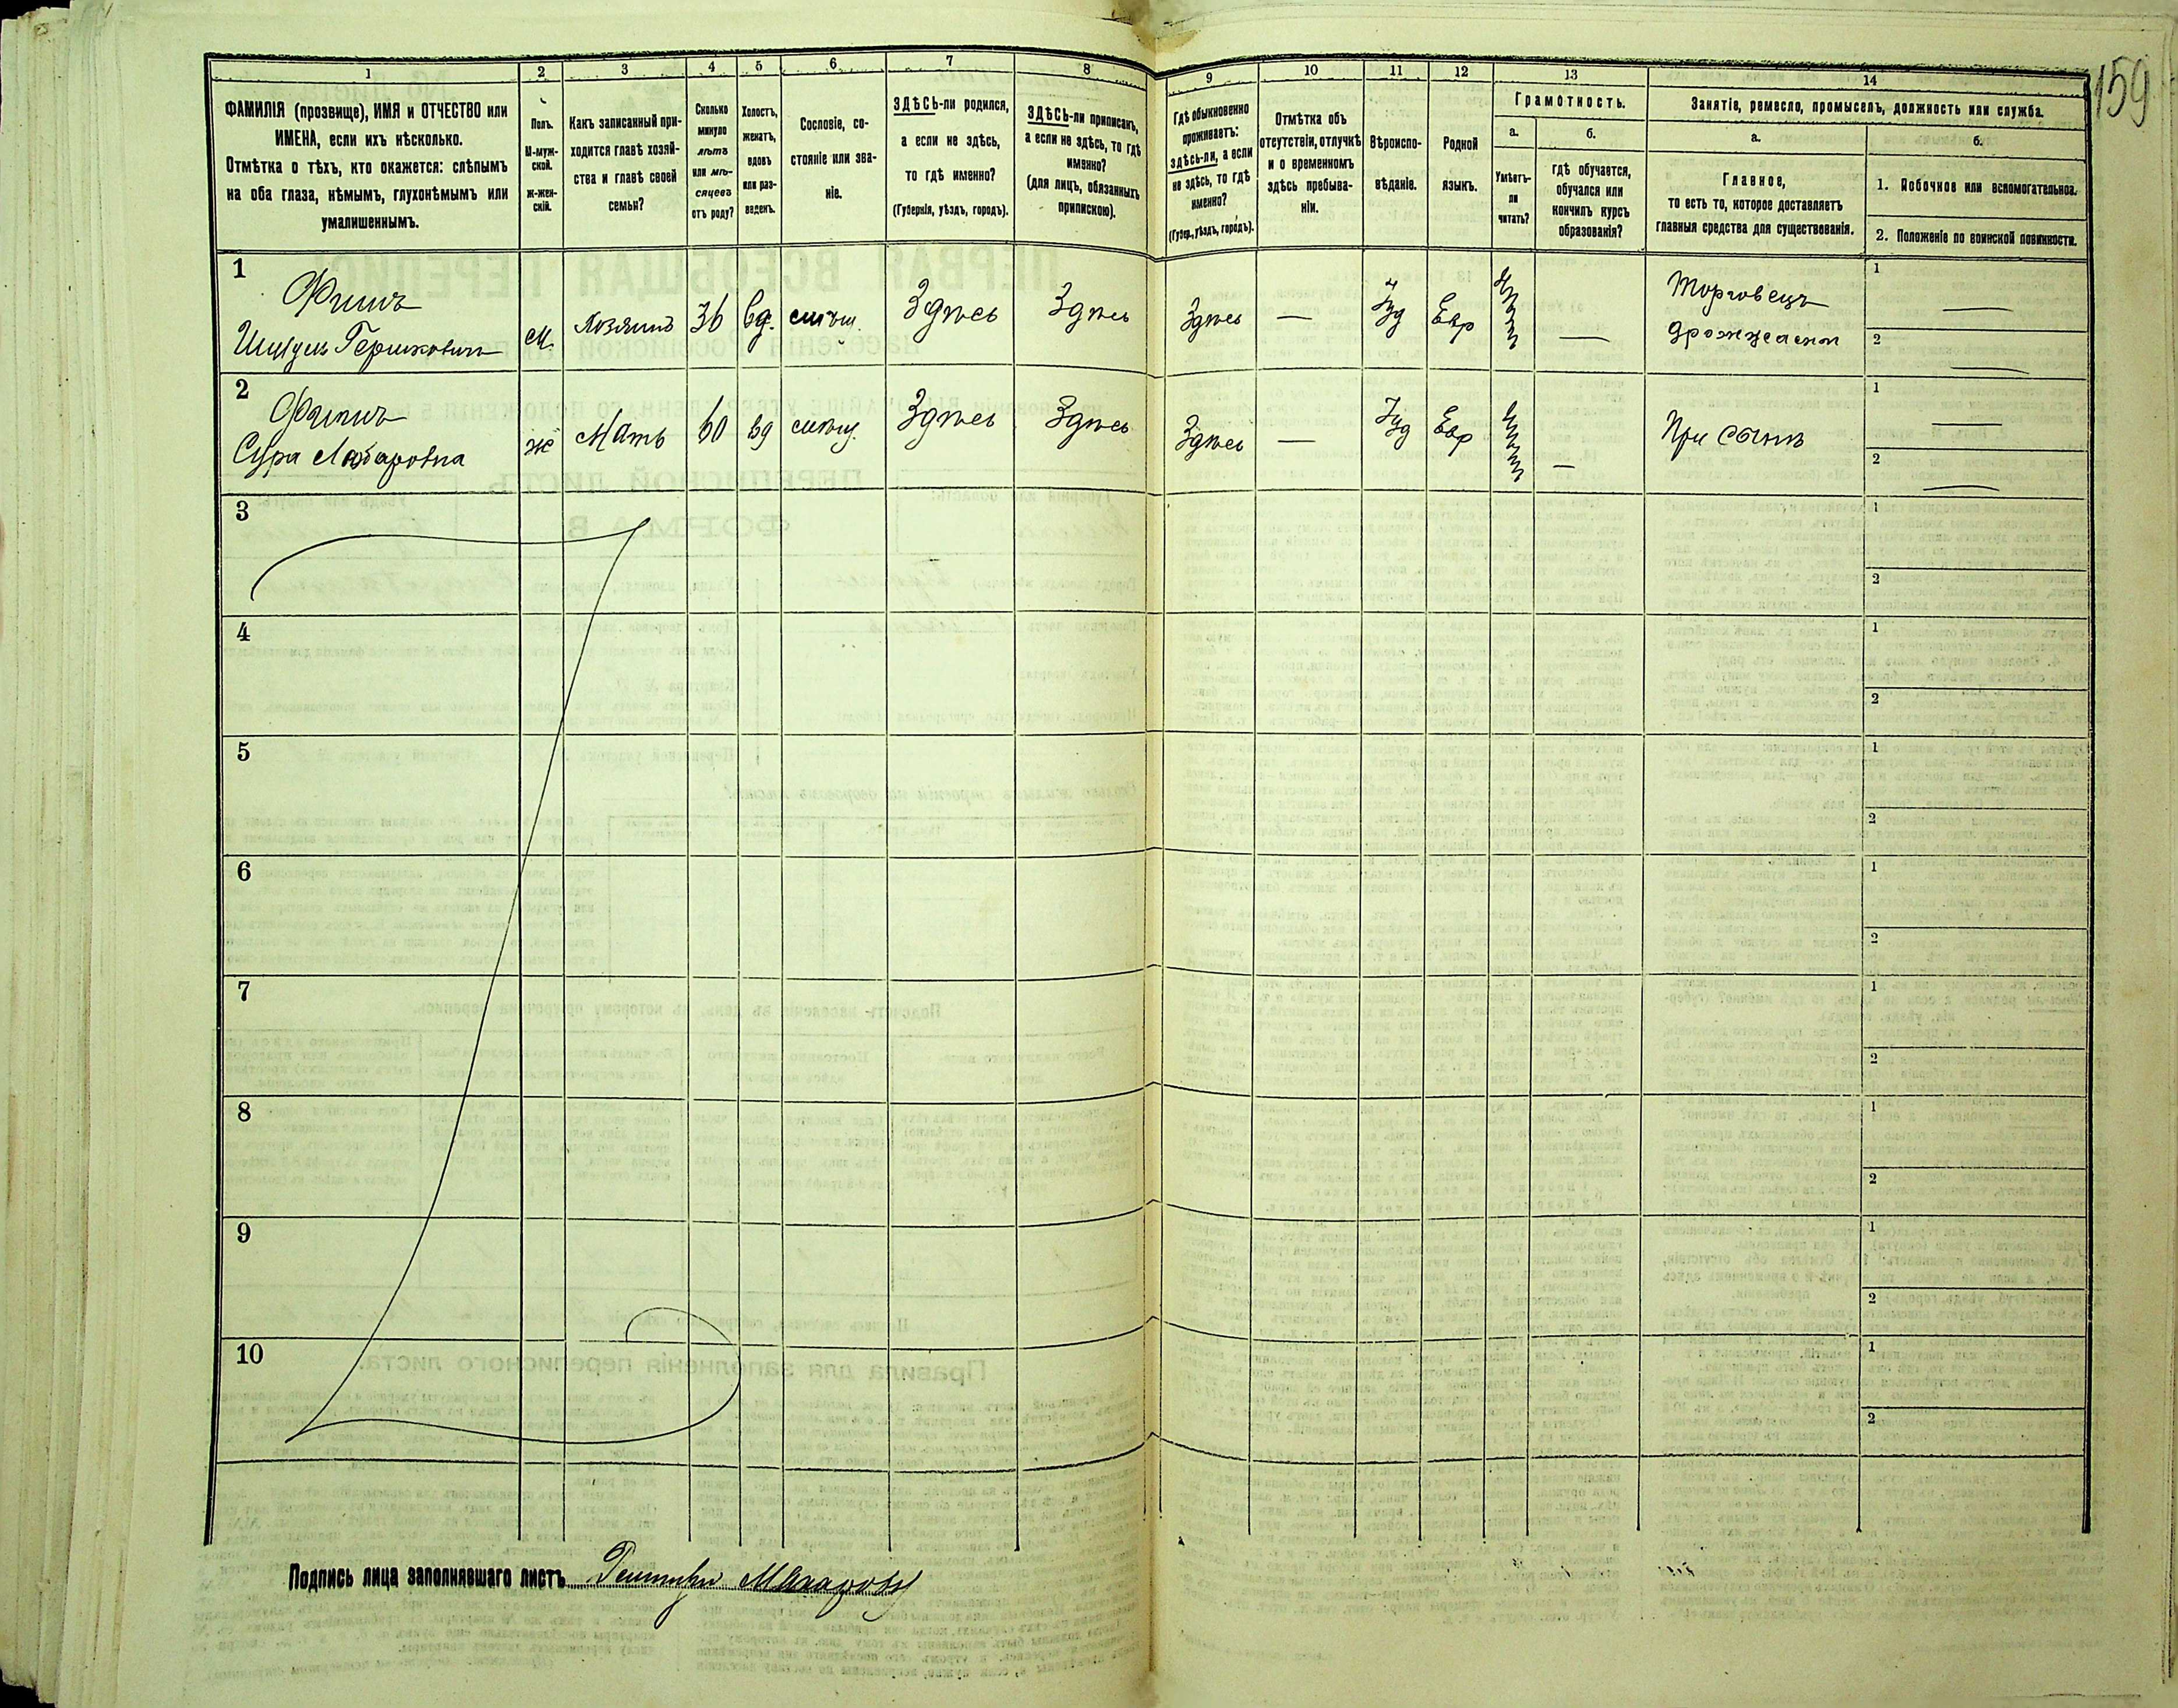 159
1 2 3 4 5 6 7 8 9 10 11 12 13 14
ФАМИЛІЯ (прозвище), ИМЯ и ОТЧЕСТВО или
ИМЕНА, если ихъ нѣсколько.
Отмѣтка о тѣхъ, кто окажется: слѣпымъ
на оба глаза, нѣмымъ, глухонѣмымъ или
умалишеннымъ.
Полъ.
М-муж-
ской.
Ж-жен-
скій.
Какъ записанный при-
ходится главѣ хозяй-
ства и главѣ своей
семьи?
Сколько
минуло
лѣтъ
или мѣ-
сяцевъ
отъ роду?
Холостъ,
женатъ,
вдовъ
или раз-
веденъ.
Сословіе, со-
стояніе или зва-
ніе.
ЗДѢСЬ-ли родился,
а если не здѣсь,
то гдѣ именно?
(Губернія, уѣздъ, городъ).
ЗДѢСЬ-ли приписанъ,
а если не здѣсь, то гдѣ
именно?
(для лицъ, обязанныхъ
припискою).
Гдѣ обыкновенно
проживаетъ:
здѣсь-ли, а если
не здѣсь, то гдѣ
именно?
(Губер., уѣздъ, городъ).
Отмѣтка объ
отсутствіи, отлучкѣ
и о временномъ
здѣсь пребыва-
ніи.
Вѣроиспо-
вѣданіе.
Родной
языкъ.
Грамотность.
а. б.
Умѣетъ-
ли
читать?
гдѣ обучается,
обучался или
кончилъ курсъ
образованія?
Занятіе, ремесло, промыселъ, должность или служба.
а. б.
Главное,
то есть то, которое доставляетъ
главныя средства для существованія.
1. Побочное или вспомогательное.
2. Положеніе по воинской повинности.
1
Финъ
Гершковичъ
м. Хозяинъ 36 вд. мѣщ. Здѣсь Здѣсь Здѣсь — Іуд Евр —
Торговецъ
дрожжами
1 —
2 —
2
Финъ
Сура Лазаровна
ж Мать 60 вд мѣщ. Здѣсь Здѣсь Здѣсь — Іуд Евр —
При сынѣ
1 —
2 —
3 1
2
4 1
2
5 1
2
6 1
2
7 1
2
8 1
2
9 1
2
10 1
2
Подпись лица заполнявшаго листъ